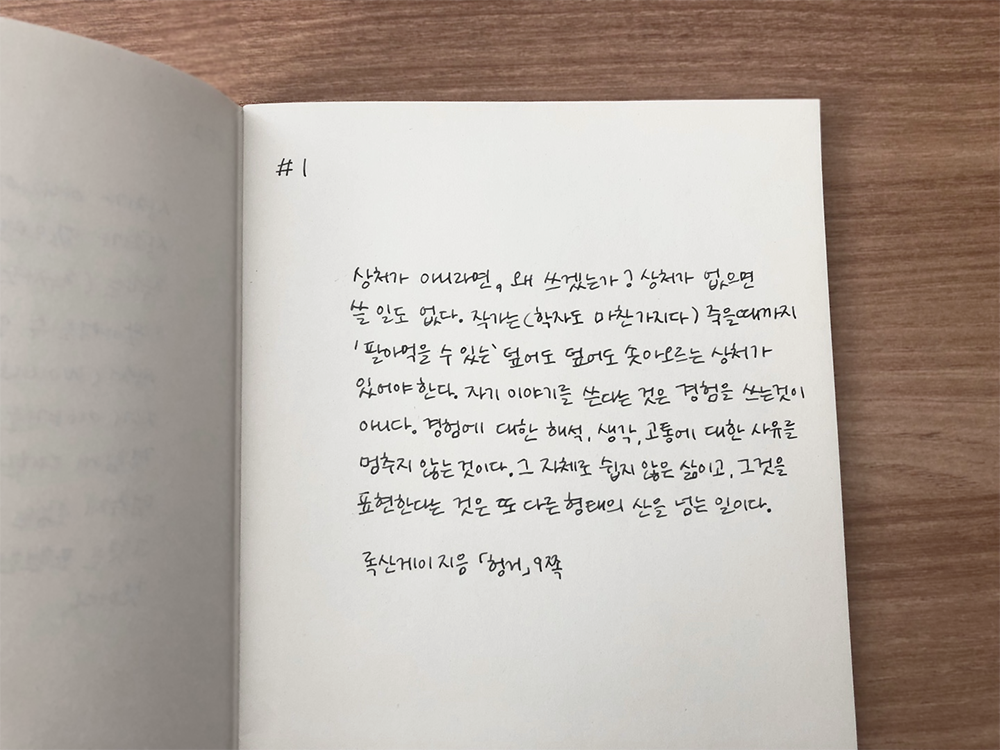 #1
상처가 아니라면, 왜 쓰겠는가? 상처가 없으면
쓸 일도 없다. 작가는(학자도 마찬가지다) 죽을때까지
'팔아먹을 수 있는' 덮어도 덮어도 솟아오르는 상처가
있어야 한다. 자기 이야기를 쓴다는 것은 경험을 쓰는것이
아니다. 경험에 대한 해석, 생각, 고통에 대한 사유를
멈추지 않는 것이다. 그 자체로 쉽지 않은 삶이고, 그것을
표현한다는 것은 또 다른 형태의 산을 넘는 일이다.
록산게이 지음 「헝거」 9쪽